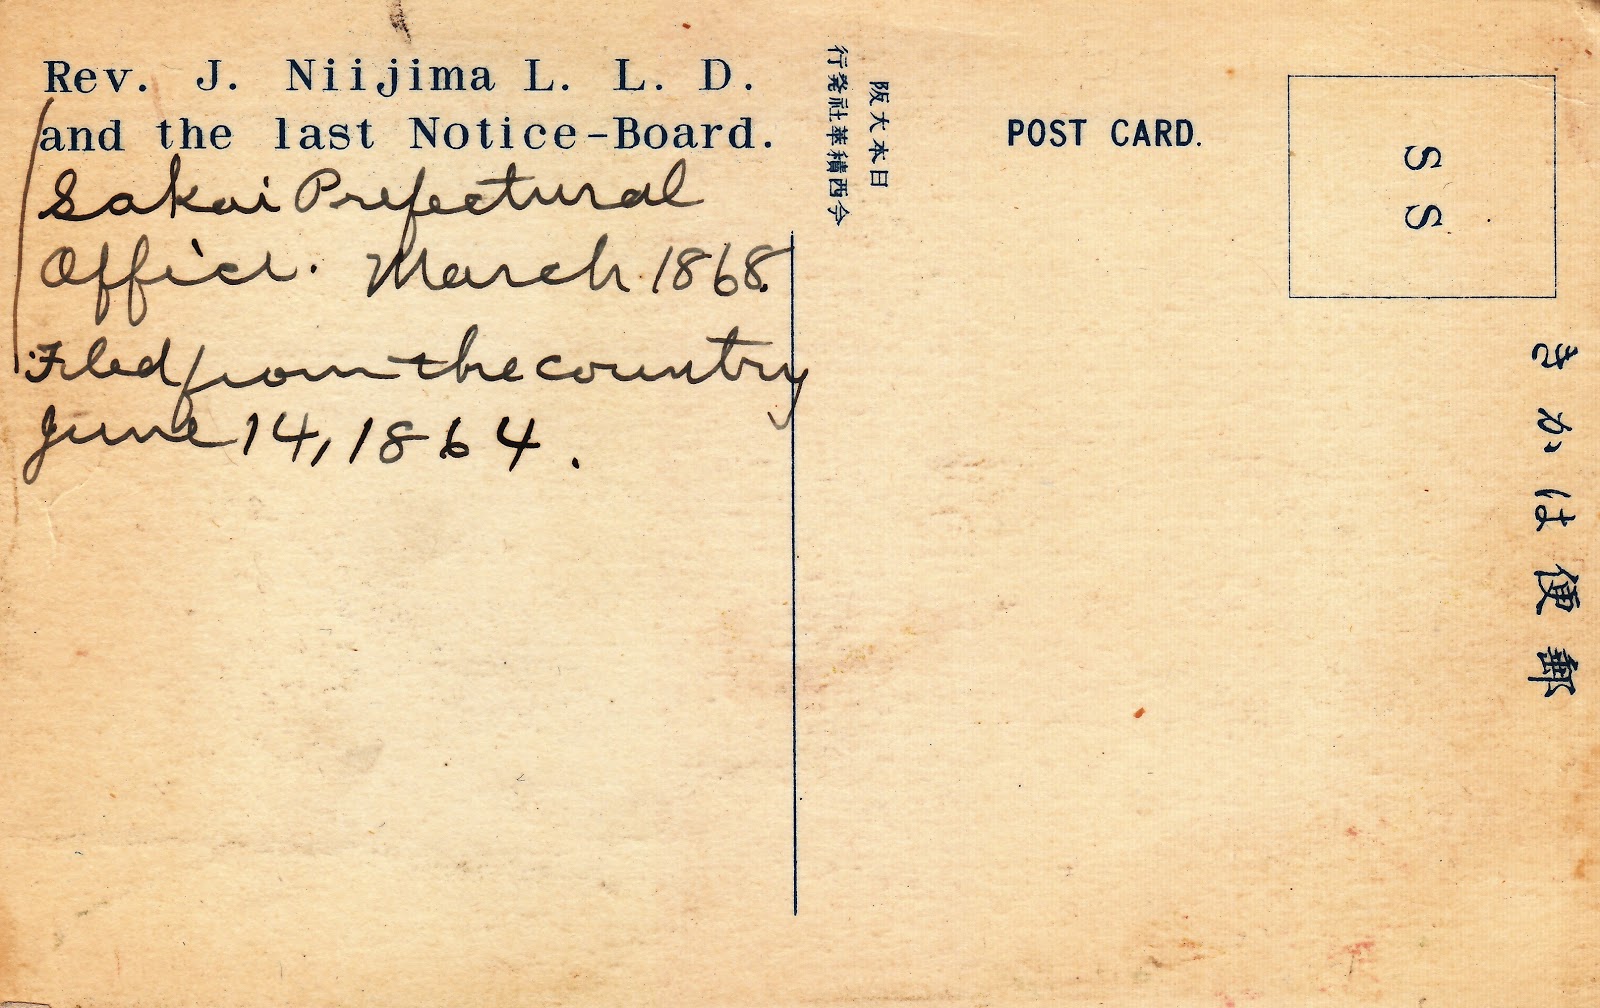 Rev. J. Niijima L. L. D.
and the last Notice-Board.
Sakai Prefectural
Office. March 1868.
Fled from the country
June 14, 1864.
日本大阪
今西積華社発行
POST CARD.
S S
郵便はかき